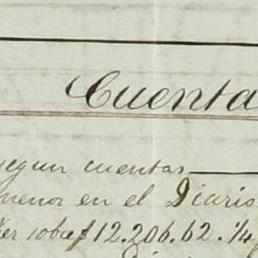 Cuenta
segun cuentas
menor en el Diario
sobre $12.206.62.¼